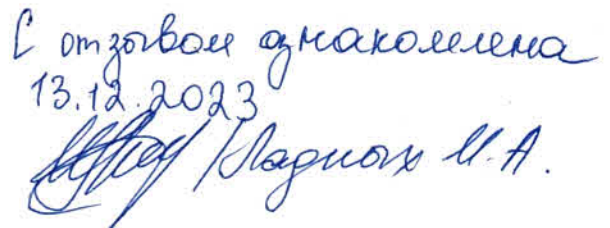 С отзывом ознакомлена
13.12.2023
/ Кладных М.А.